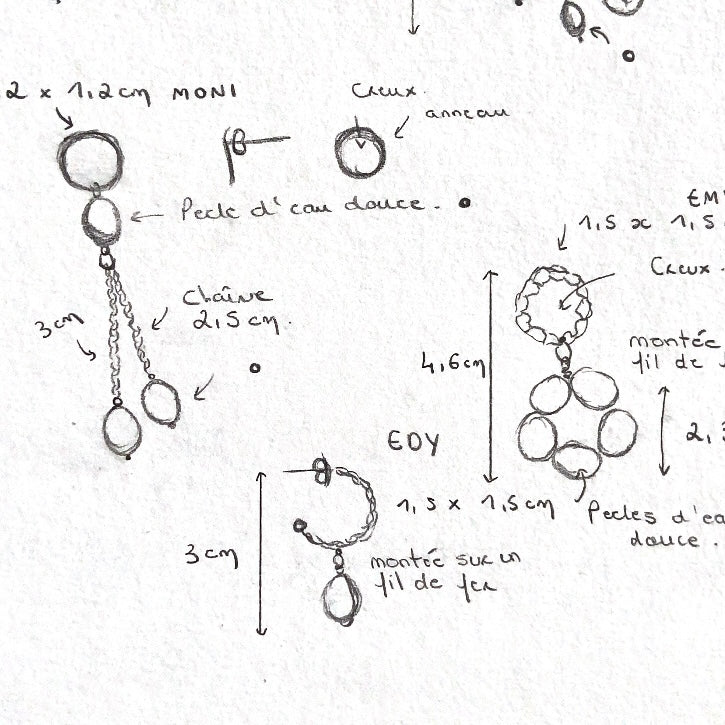 2 x 1,2cm MONI
Creux.
anneau
Perle d'eau douce.
Chaîne
2,5 cm.
3cm
EM
1,5 x 1,5
Creux.
montée
fil de
4,6cm
2,
Perles d'ea
douce.
EDY
1,5 x 1,5cm
3cm
montée sur un
fil de fer